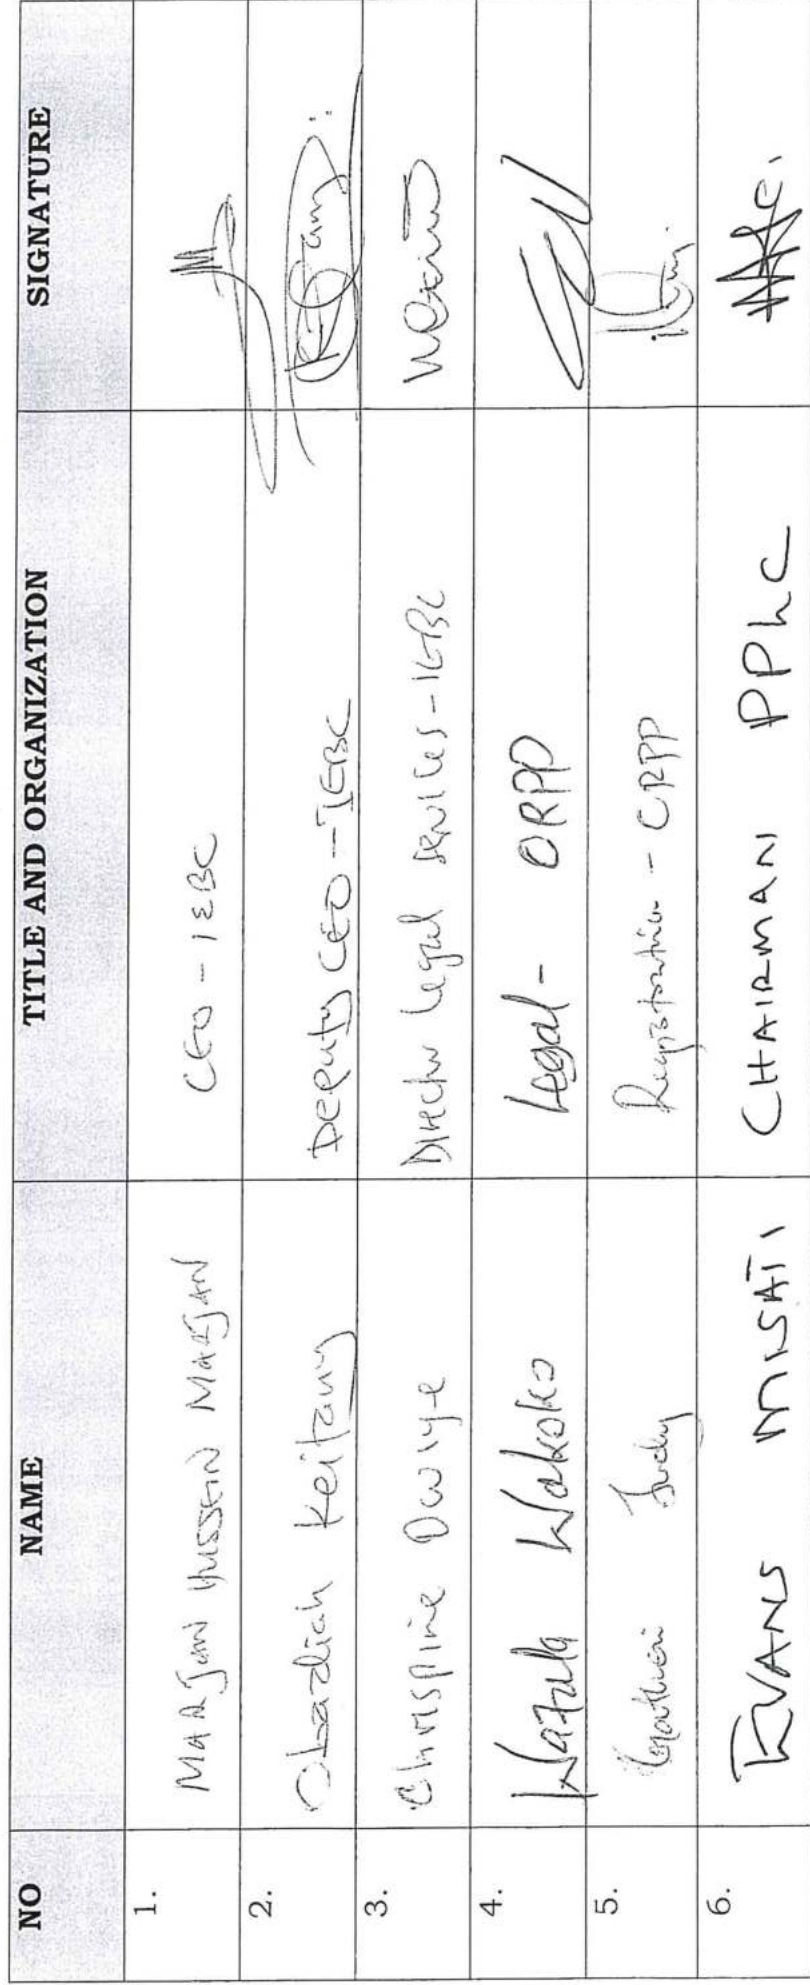 NO NAME TITLE AND ORGANIZATION SIGNATURE
1. MARJAN HUSSEIN MARJAN CEO - IEBC
2. Obadiah Keitany Deputy CEO - IEBC
3. Chrispine Owiye Director legal services - IEBC
4. Wafula Wakoko Legal - ORPP
5. Judy Registration - ORPP
6. EVANS MISATI CHAIRMAN PPLC